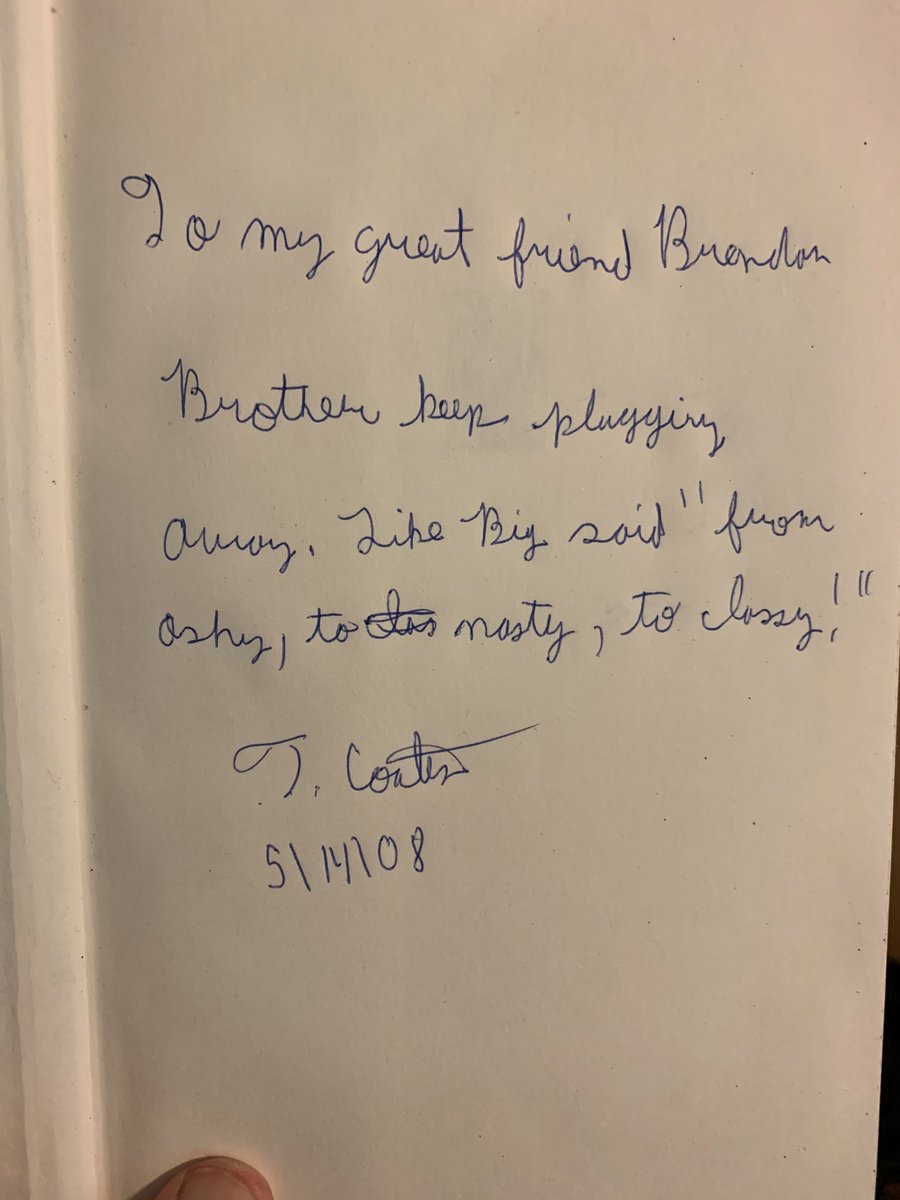 To my great friend Brendan
Brother keep plugging
away. Like Big said "from
ashy, to nasty, to classy!"
T. Coates
5\14\08